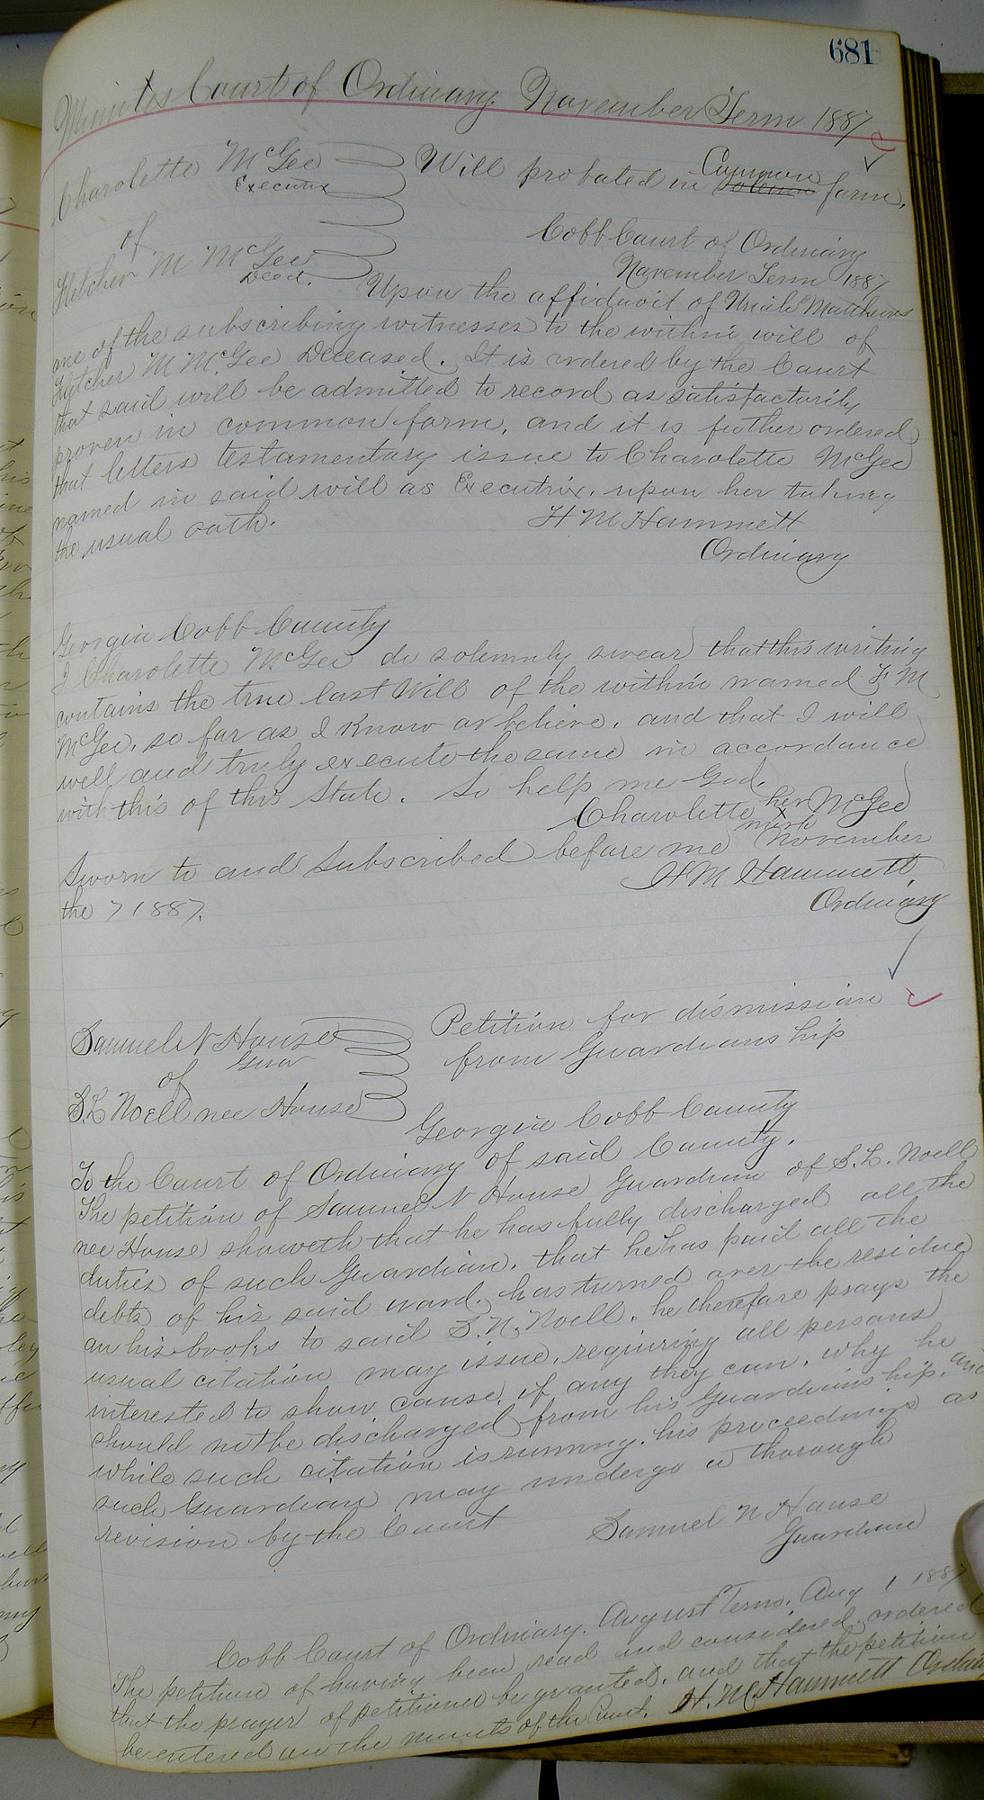 681
Minutes Court of Ordinary November Term 1887
Charolette McGee
Executrix
of
Fletcher M McGee
Deced.
Will probated in Common solemn form.
Cobb Court of Ordinary
November Term 1887
Upon the affidavit of Matthews
one of the subscribing witnesses to the within will of
Fletcher M McGee Deceased. It is ordered by the Court
that said will be admitted to record as satisfactorily
proven in common form, and it is further ordered
that letters testamentary issue to Charolette McGee
named in said will as Executrix, upon her taking
the usual oath.
H M Hammett
Ordinary
Georgia Cobb County
I Charolette McGee do solemnly swear that this writing
contains the true last Will of the within named F M
McGee, so far as I know or believe, and that I will
well and truly execute the same in accordance
with this of this State. So help me God.
Charolette her x mark McGee
Sworn to and subscribed before me November
the 7 1887.
H M Hammett
Ordinary
Samuel N House
Guar
of
S. L Noell nee House
Petition for dismission
from Guardianship
Georgia Cobb County
To the Court of Ordinary of said County.
The petition of Samuel N House Guardian of S. L. Noell
nee House showeth that he has fully discharged all the
duties of such Guardian, that he has paid all the
debts of his said ward, has turned over the residue
on his books to said S. N. Noell, he therefore prays the
usual citation may issue, requiring all persons
interested to show cause, if any they can, why he
should not be discharged from his Guardianship, and
while such citation is running, his proceedings as
such Guardian may undergo a thorough
revision by the Court
Samuel N House
Guardian
Cobb Court of Ordinary, August Term, Aug 1 1887
The petition of having been read and considered, ordered
that the prayer of petitioner be granted, and that the petition
be entered on the minutes of the Court. H. M. Hammett Ordinary